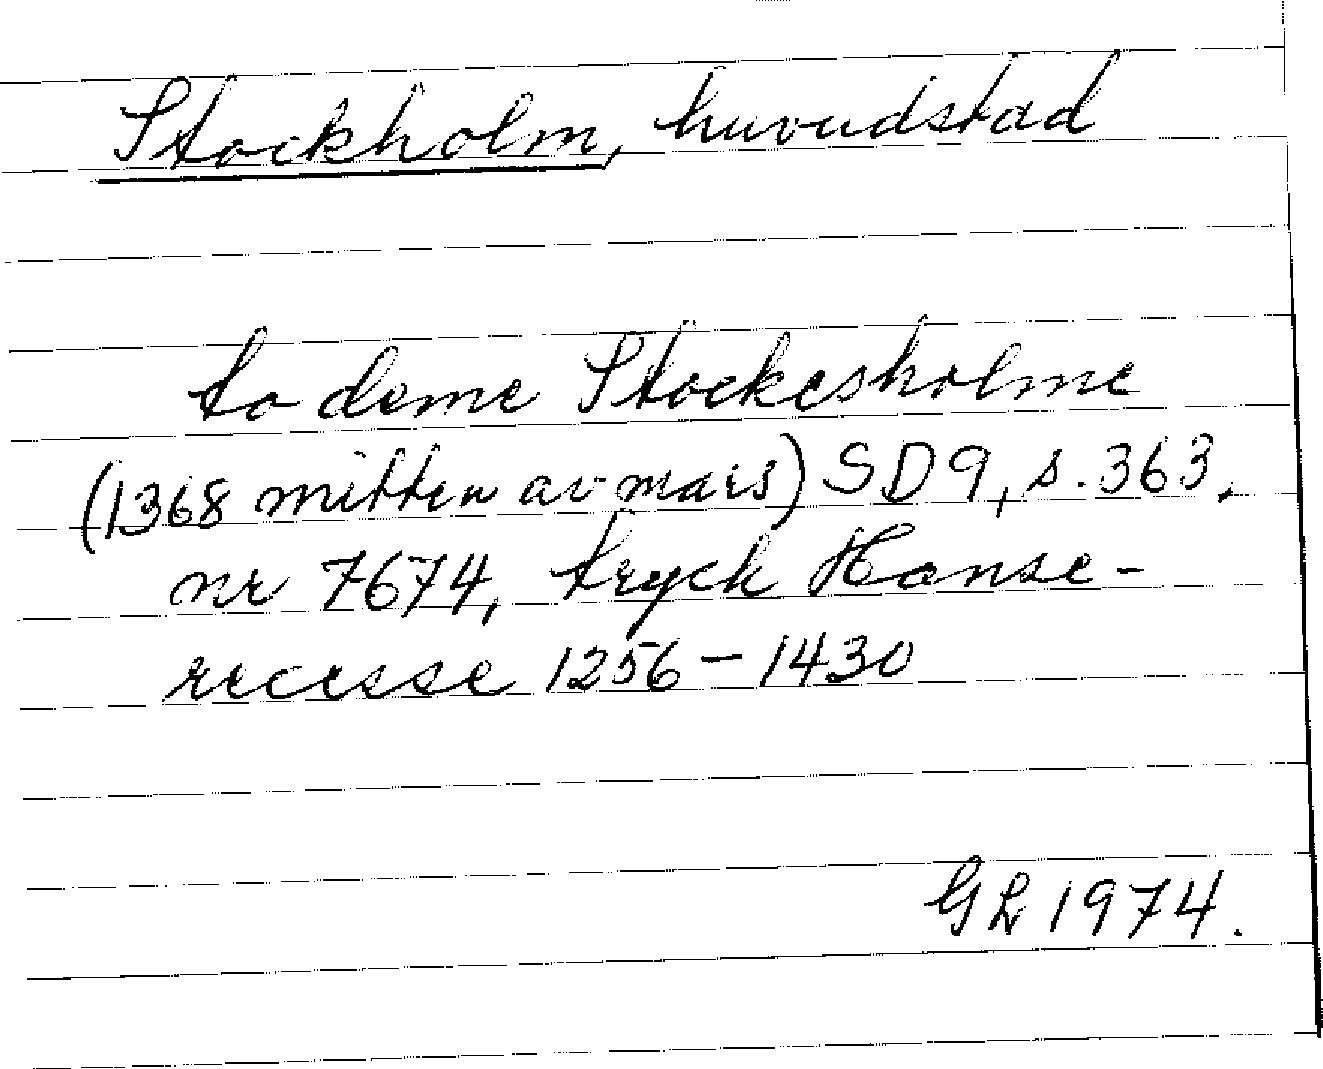 Stockholm, huvudstad
to deme Stockesholme
(1368 mitten av mars) SD 9, s. 363,
nr 7674, tryck Hanse-
recesse 1256 – 1430
GL 1974.